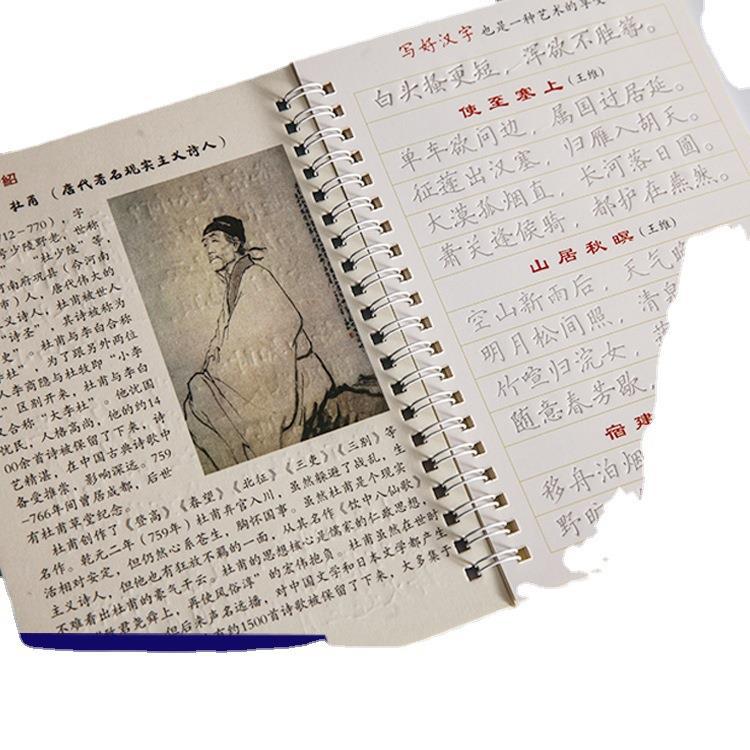 绍
杜甫 （唐代著名现实主义诗人）
712-770），字
号少陵野老，世称
、“杜少陵”等，
河南府巩县（今河南
市）人，唐代伟大的
义诗人，杜甫被世人
“诗圣”，其诗被称为
史”。杜甫与李白合称
李杜”，为了跟另外两位
人李商隐与杜牧即“小李
”区别开来，杜甫与李白
又合称“大李杜”。他忧国
忧民，人格高尚，他的约14
00余首诗被保留了下来，诗
艺精湛，在中国古典诗歌中
备受推崇，影响深远。759
-766年间曾居成都，后世
有杜甫草堂纪念。
杜甫创作了《登高》《春望》《北征》《三吏》《三别》等
名作。乾元二年（759年）杜甫弃官入川，虽然躲避了战乱，生
活相对安定，但仍然心系苍生，胸怀国事。虽然杜甫是个现实
主义诗人，但他也有狂放不羁的一面，从其名作《饮中八仙歌》
不难看出杜甫的豪气干云。杜甫的思想核心是儒家的仁政思想，
致君尧舜上，再使风俗淳”的宏伟抱负。杜甫虽然在世时
但后来声名远播，对中国文学和日本文学都产生
有约1500首诗歌被保留了下来，大多集于
写好汉字 也是一种艺术的享受
白头搔更短，浑欲不胜簪。
使至塞上（王维）
单车欲问边，属国过居延。
征蓬出汉塞，归雁入胡天。
大漠孤烟直，长河落日圆。
萧关逢候骑，都护在燕然。
山居秋暝（王维）
空山新雨后，天气晚
明月松间照，清泉
竹喧归浣女，
随意春芳歇，
宿建
移舟泊烟
野旷